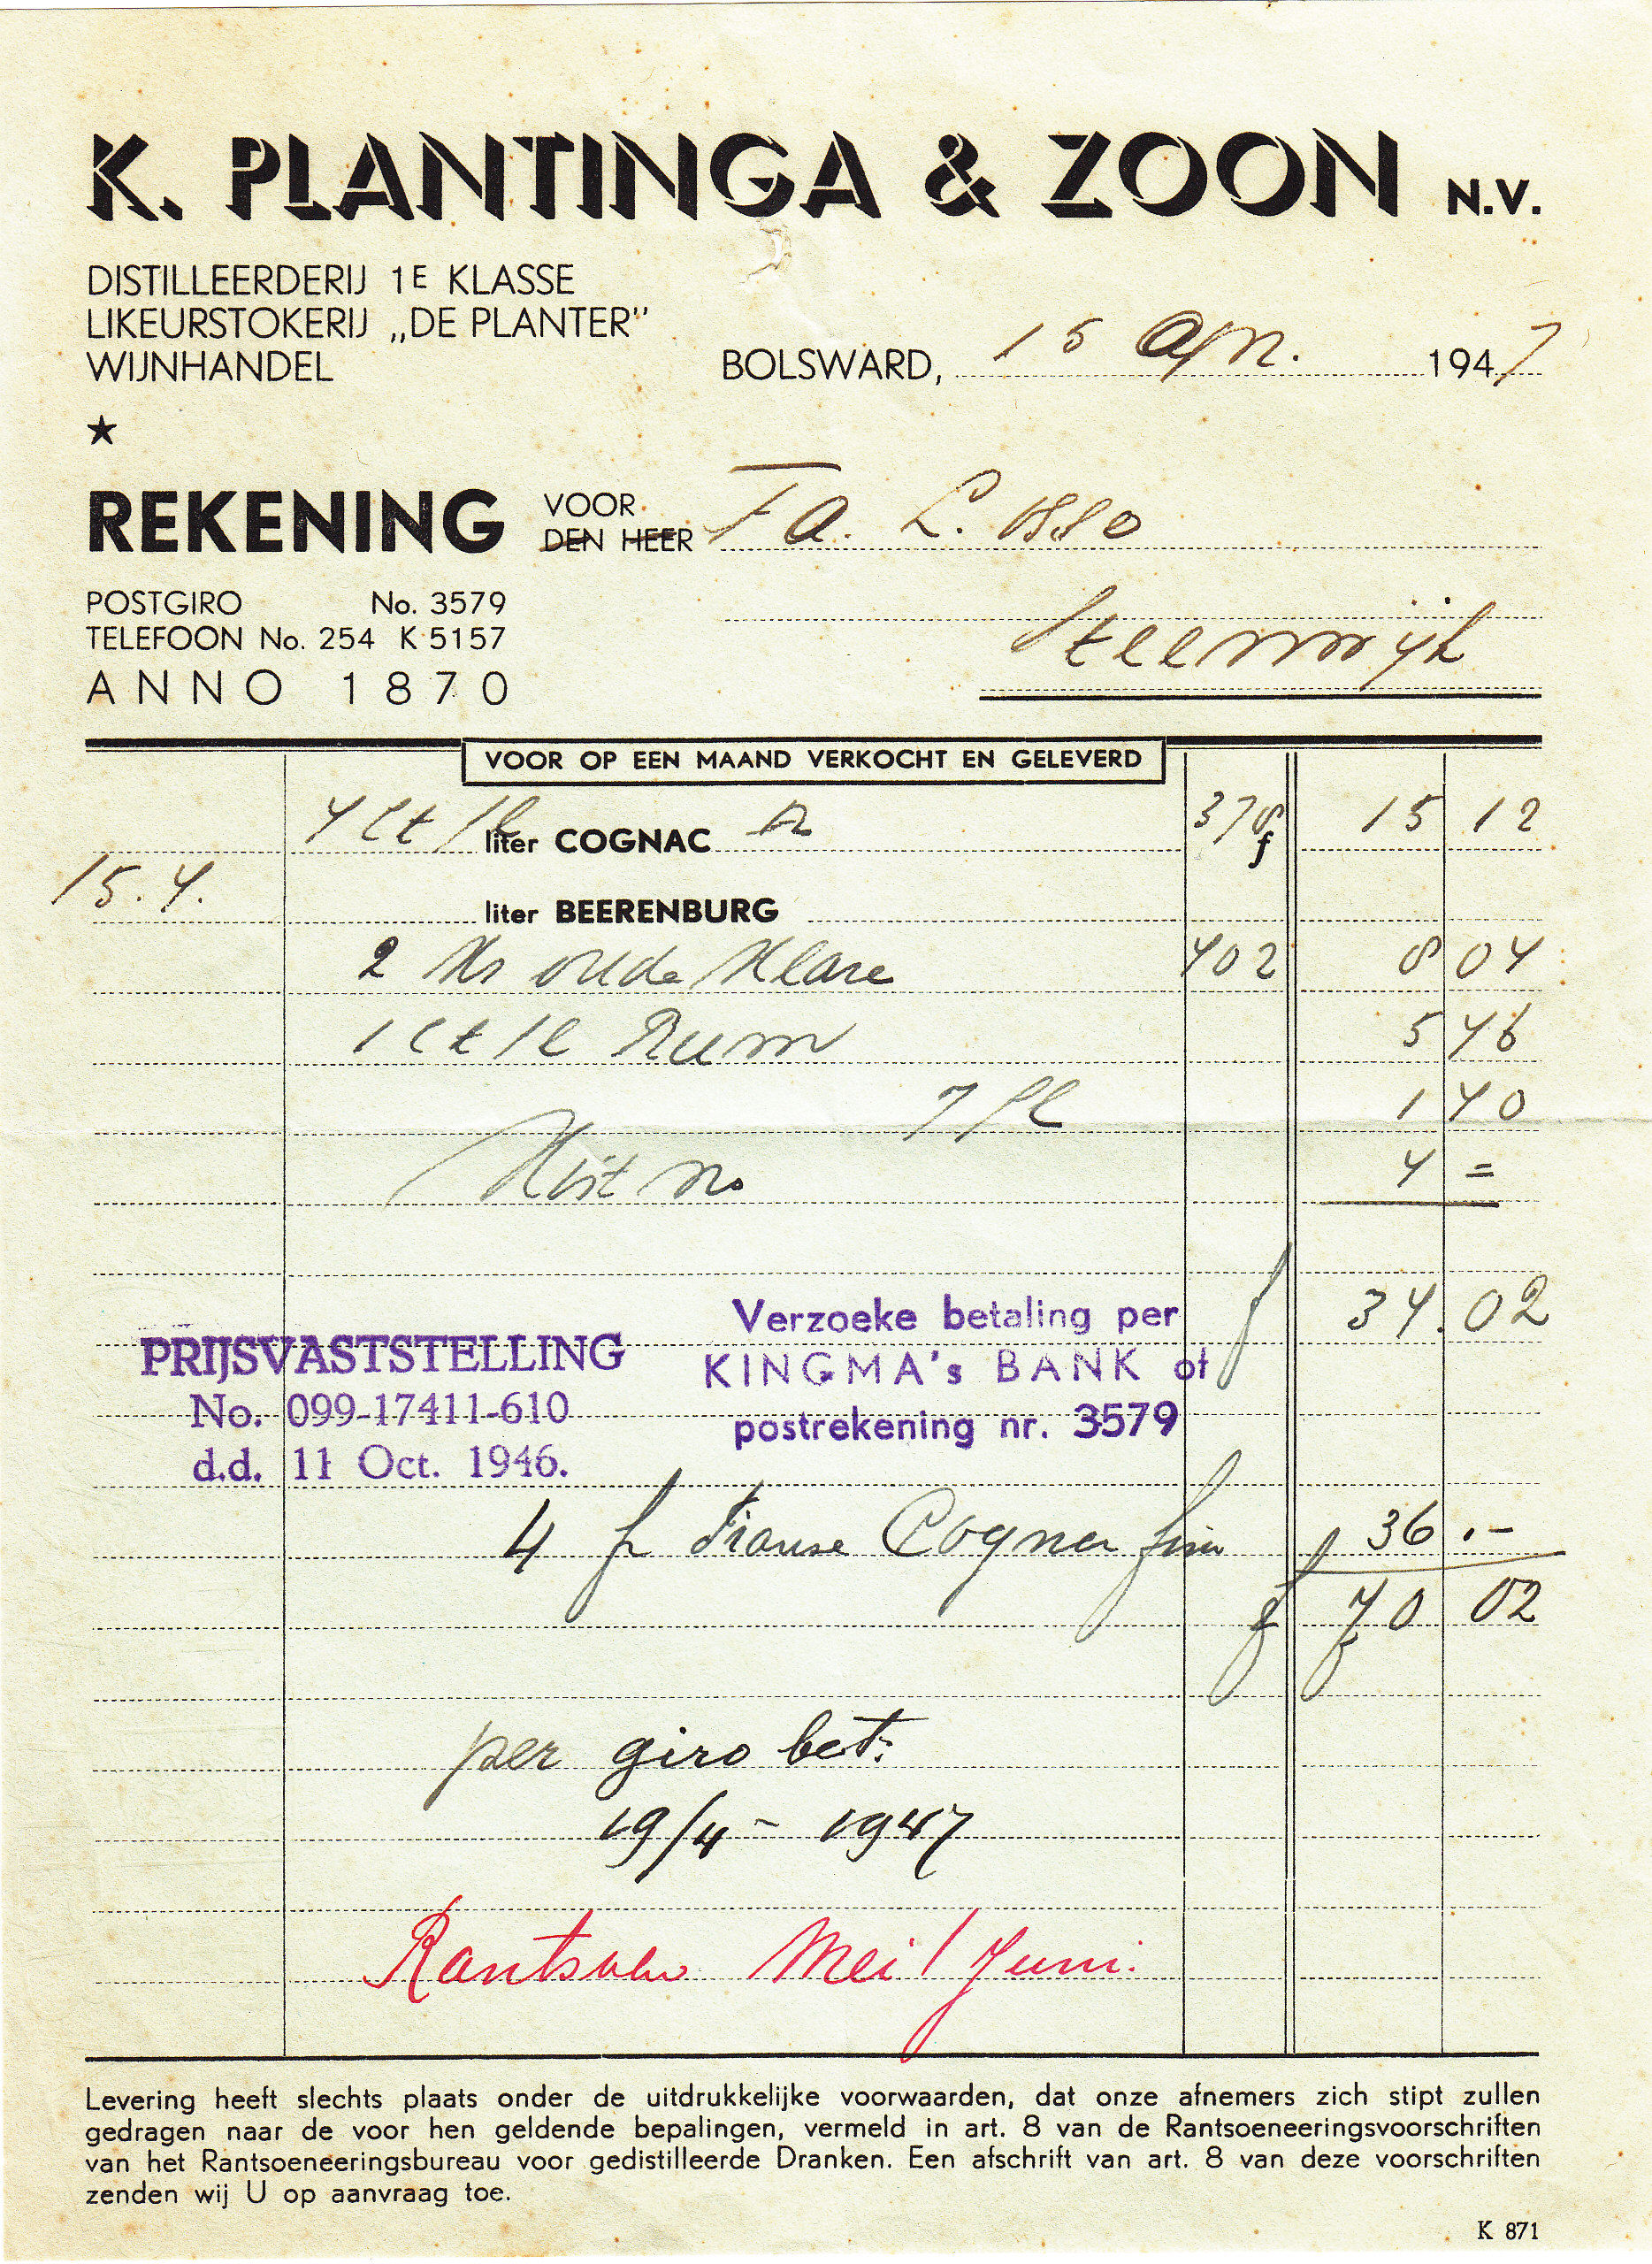 K. PLANTINGA & ZOON N.V.
DISTILLEERDERIJ 1E KLASSE
LIKEURSTOKERIJ „DE PLANTER”
WIJNHANDEL
BOLSWARD, 15 Apr. 1947
★
REKENING VOOR DEN HEER Fa. L.
POSTGIRO No. 3579
TELEFOON No. 254 K 5157
Steenwijk
ANNO 1870
VOOR OP EEN MAAND VERKOCHT EN GELEVERD
4 liter COGNAC 378 f 15 12
15.4.
liter BEERENBURG
2 oude Klare 402 8 04
1 Rum 5 46
7 fl 1 40
Kist no 4 =
f 34.02
PRIJSVASTSTELLING
No. 099-17411-610
d.d. 11 Oct. 1946.
Verzoeke betaling per
KINGMA's BANK of
postrekening nr. 3579
4 fl Franse Cognac fine f 36.-
f 70 02
per giro bet:
19/4 - 1947
Rantsoen Mei/Juni.
Levering heeft slechts plaats onder de uitdrukkelijke voorwaarden, dat onze afnemers zich stipt zullen
gedragen naar de voor hen geldende bepalingen, vermeld in art. 8 van de Rantsoeneeringsvoorschriften
van het Rantsoeneeringsbureau voor gedistilleerde Dranken. Een afschrift van art. 8 van deze voorschriften
zenden wij U op aanvraag toe.
K 871